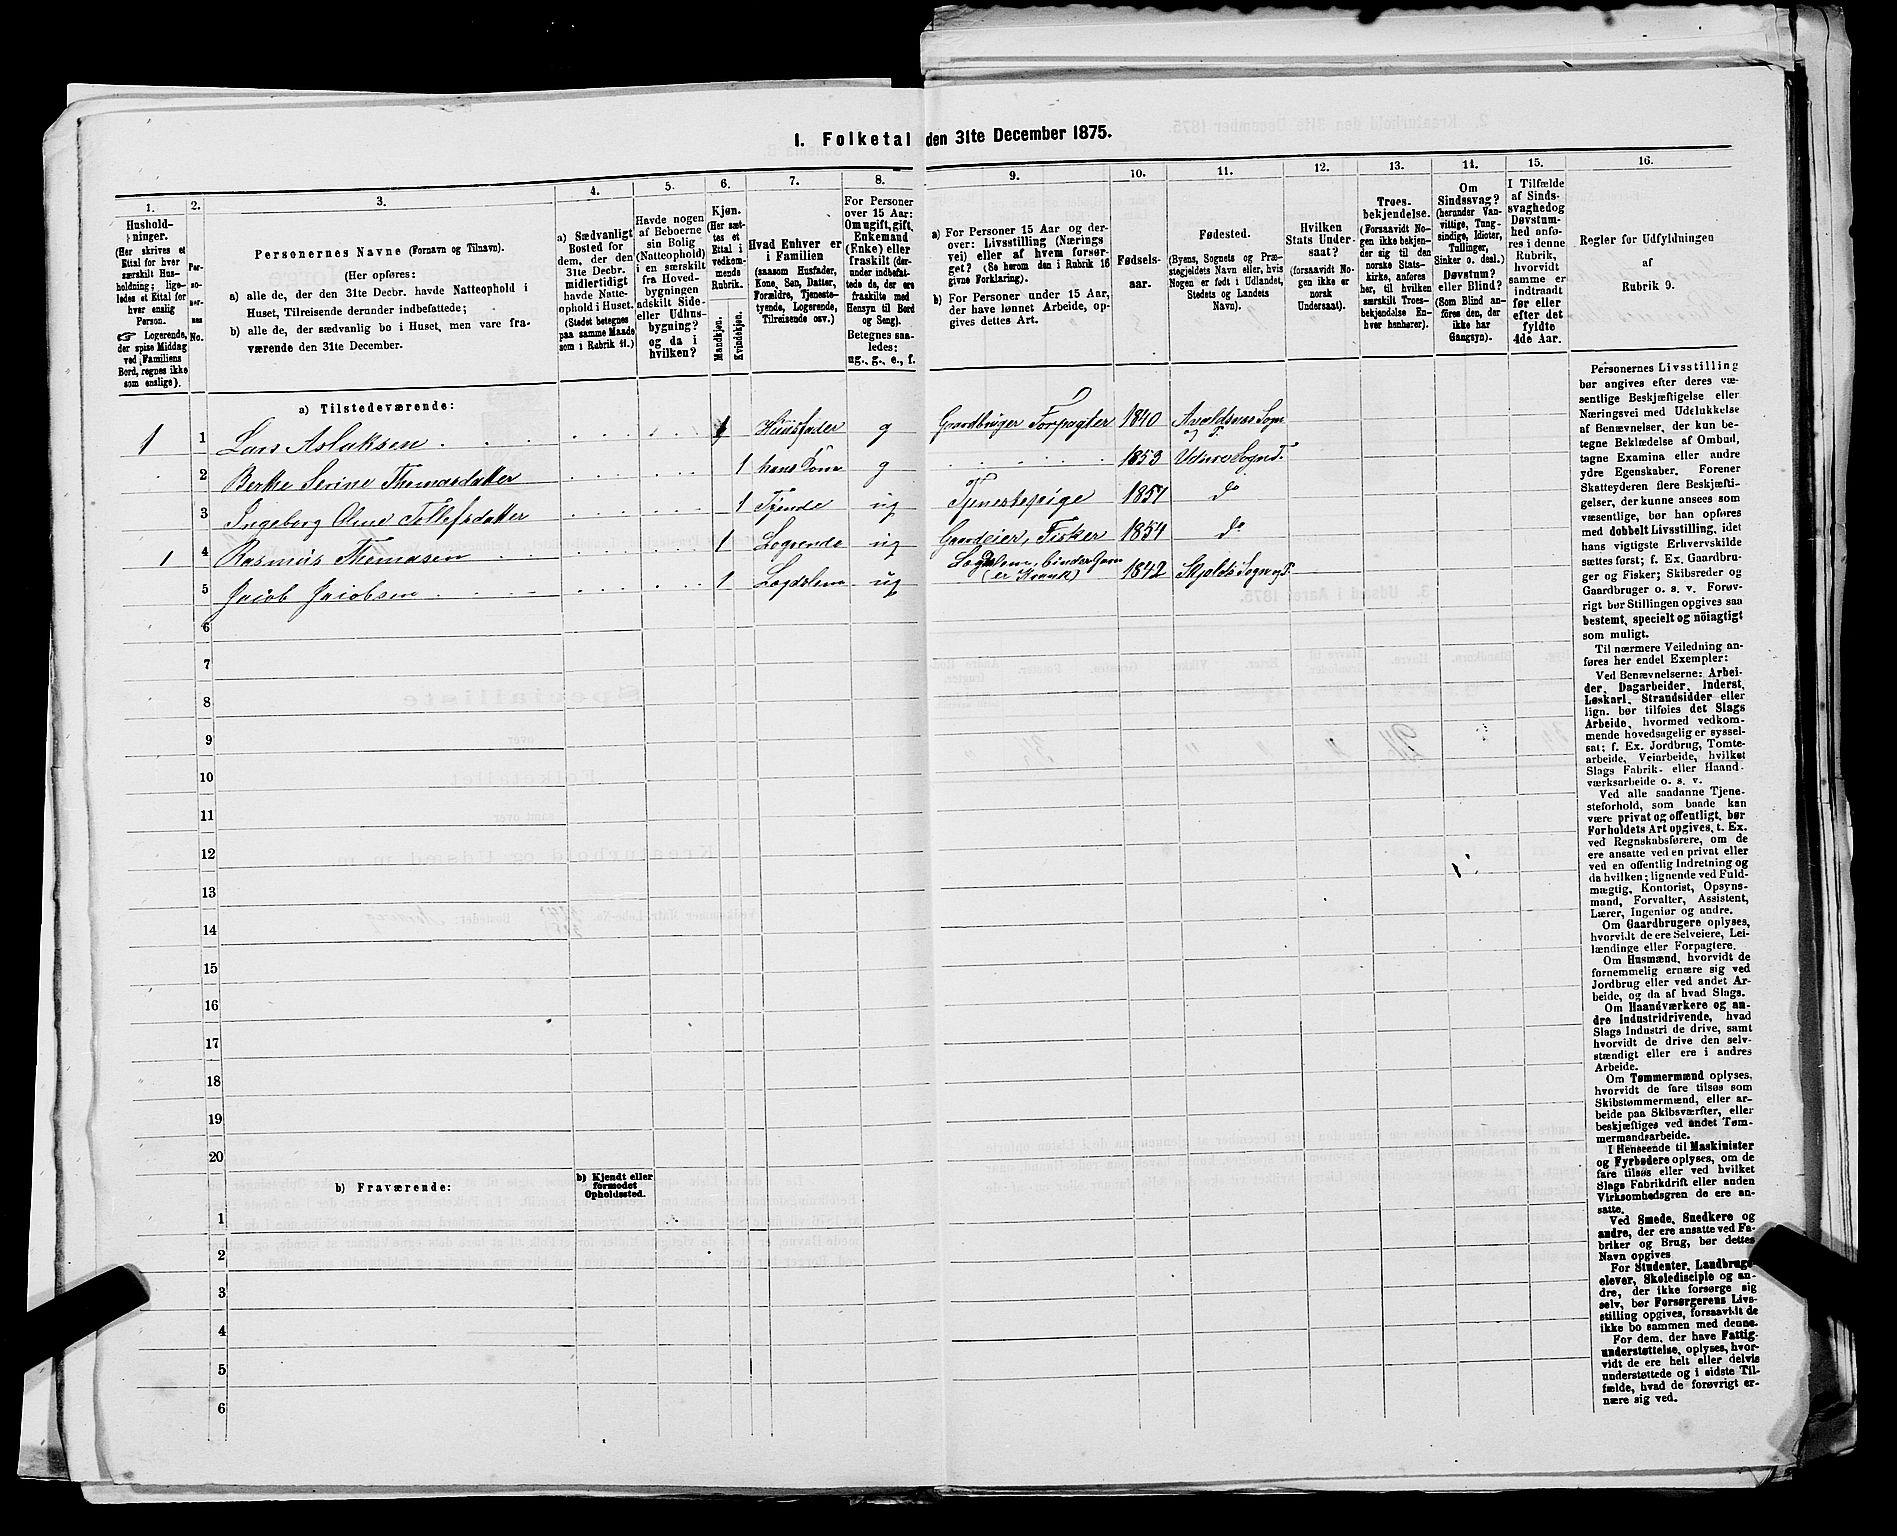 1. Folketal den 31te December 1875.
1.
2.
3.
4.
5.
6.
7.
8.
9.
10.
11.
12.
13.
14.
15.
16.
Hushold-
ninger.
(Her skrives et
Ettal for hver
særskilt Hus-
holdning; lige-
ledes et Ettal for
hver enslig
Person.
☞ Logerende,
der spise Middag
ved Familiens
Bord, regnes ikke
som enslige).
Per-
so-
ner-
nes
No.
Personernes Navne (Fornavn og Tilnavn).
(Her opføres:
a) alle de, der den 31te Decbr. havde Natteophold i
Huset, Tilreisende derunder indbefattede;
b) alle de, der sædvanlig bo i Huset, men vare fra-
værende den 31te December.
a) Sædvanligt
Bosted for
dem, der den
31te Decbr.
midlertidigt
havde Natte-
ophold i Huset
(Stedet betegnes
paa samme Maade
som i Rubrik 11.)
Havde nogen
af Beboerne
sin Bolig
(Natteophold)
i en særskilt
fra Hoved-
bygningen
adskilt Side-
eller Udhus-
bygning?
og da i
hvilken?
Kjøn.
(Her sæt-
tes et
Ettal i
vedkom-
mende
Rubrik.
Mandkjøn.
Kvindekjøn.
Hvad Enhver er
i Familien
(saasom Husfader,
Kone, Søn, Datter,
Forældre, Tjeneste-
tyende, Logerende,
Tilreisende osv.)
For Personer
over 15 Aar:
Om ugift, gift,
Enkemand
(Enke) eller
fraskilt (der-
under indbefat-
tede de, der ere
fraskilte med
Hensyn til Bord
og Seng).
Betegnes saa-
ledes:
ug., g., e., f.
a) For Personer 15 Aar og der-
over: Livsstilling (Nærings
vei) eller af hvem forsør-
get? (Se herom den i Rubrik 16
givne Forklaring.)
b) For Personer under 15 Aar,
der have lønnet Arbeide, op-
gives dettes Art.
Fødsels-
aar.
Fødested.
(Byens, Sognets og Præ-
stegjeldets Navn eller, hvis
Nogen er født i Udlandet,
Stedets og Landets
Navn).
Hvilken
Stats Under-
saat?
(forsaavidt No-
gen ikke er
norsk
Undersaat).
Troes-
bekjendelse.
(Forsaavidt No-
gen ikke bekjen-
der sig til den
norske Stats-
kirke, anføres
her, til hvilken
særskilt Troes-
bekjendelse En-
hver henhører).
Om
Sindssvag?
(herunder Van-
vittige, Tung-
sindige, Idioter,
Tullinger,
Sinker o. desl.)
Døvstum?
eller Blind?
(Som Blind an-
føres den, der
ikke har
Gangsyn).
I Tilfælde
af Sinds-
svaghedog
Døvstum-
hed anfø-
res i denne
Rubrik,
hvorvidt
samme er
indtraadt
før eller
efter det
fyldte
4de Aar.
Regler for Udfyldningen
af
Rubrik 9.
a) Tilstedeværende:
1 1 Lars Aslaksen 1 Huusfader g Gaardbruger Forpagter 1840 Avaldsnæs Sogn og P.
2 Berthe Serine Thomasdatter 1 hans Kone g 1853 Udsire Sogn
3 Ingeborg Oline Tollefsdatter 1 Tjende ug Tjenestepige 1857 do
1 4 Rasmus Thomasen 1 Logerende ug Gaardeier, Fisker 1854 do
5 Jacob Jacobsen 1 Lægdslem ug Lægdslem, binder Garn (er Krank) 1842 Skjolds Sogn og P.
6
7
8
9
10
11
12
13
14
15
16
17
18
19
20
b) Fraværende:
b) Kjendt eller
formodet
Opholdssted.
1
2
3
4
5
6
Personernes Livsstilling
bør angives efter deres væ-
sentlige Beskjæftigelse eller
Næringsvei med Udelukkelse
af Benævnelser, der kun be-
tegne Beklædelse af Ombud,
tagne Examina eller andre
ydre Egenskaber. Forener
Skatteyderen flere Beskjæfti-
gelser, der kunne ansees som
væsentlige, bør han opføres
med dobbelt Livsstilling, idet
hans vigtigste Erhvervskilde
sættes først; f. Ex. Gaardbru-
ger og Fisker; Skibsreder og
Gaardbruger o. s. v. Forøv-
rigt bør Stillingen opgives saa
bestemt, specielt og nöiagtigt
som muligt.
Til nærmere Veiledning an-
føres her endel Exempler:
Ved Benævnelserne: Arbei-
der, Dagarbeider, Inderst,
Løskarl, Strandsidder eller
lign. bør tilføies det Slags
Arbeide, hvormed vedkom-
mende hovedsagelig er syssel-
sat; f. Ex. Jordbrug, Tomte-
arbeide, Veiarbeide, hvilket
Slags Fabrik- eller Haand-
værksarbeide o. s. v.
Ved alle saadanne Tjene-
steforhold, som baade kan
være privat og offentligt, bør
Forholdets Art opgives, t. Ex.
ved Regnskabsførere, om de
ere ansatte ved en privat eller
ved en offentlig Indretning og
da hvilken; lignende ved Fuld-
mægtig, Kontorist, Opsyns-
mand, Forvalter, Assistent,
Lærer, Ingeniør og andre.
Om Gaardbrugere oplyses,
hvorvidt de ere Selveiere, Lei-
lændinge eller Forpagtere.
Om Husmænd, hvorvidt de
fornemmelig ernære sig ved
Jordbrug eller ved andet Ar-
beide, og da af hvad Slags.
Om Haandværkere og an-
dre Industridrivende, hvad
Slags Industri de drive, samt
hvorvidt de drive den selv-
stændigt eller ere i andres
Arbeide.
Om Tømmermænd oplyses,
hvorvidt de fare tilsøs som
Skibstømmermænd, eller ar-
beide paa Skibsværfter, eller
beskjæftiges ved andet Tøm-
mermandsarbeide.
I Henseende til Maskinister
og Fyrbødere oplyses, om de
fare tilsøs eller ved hvilket
Slags Fabrikdrift eller anden
Virksomhedsgren de ere an-
satte.
Ved Smede, Snedkere og
andre, der ere ansatte ved Fa-
briker og Brug, bør dettes
Navn opgives
For Studenter, Landbrugs-
elever, Skoledisciple og an-
dre, der ikke forsørge sig
selv, bør Forsørgerens Livs-
stilling opgives, forsaavidt de
ikke bo sammen med denne.
For dem, der have Fattig-
understøttelse, oplyses, hvor-
vidt de ere helt eller delvis
understøttede og i sidste Til-
fælde, hvad de forøvrigt er-
nære sig ved.